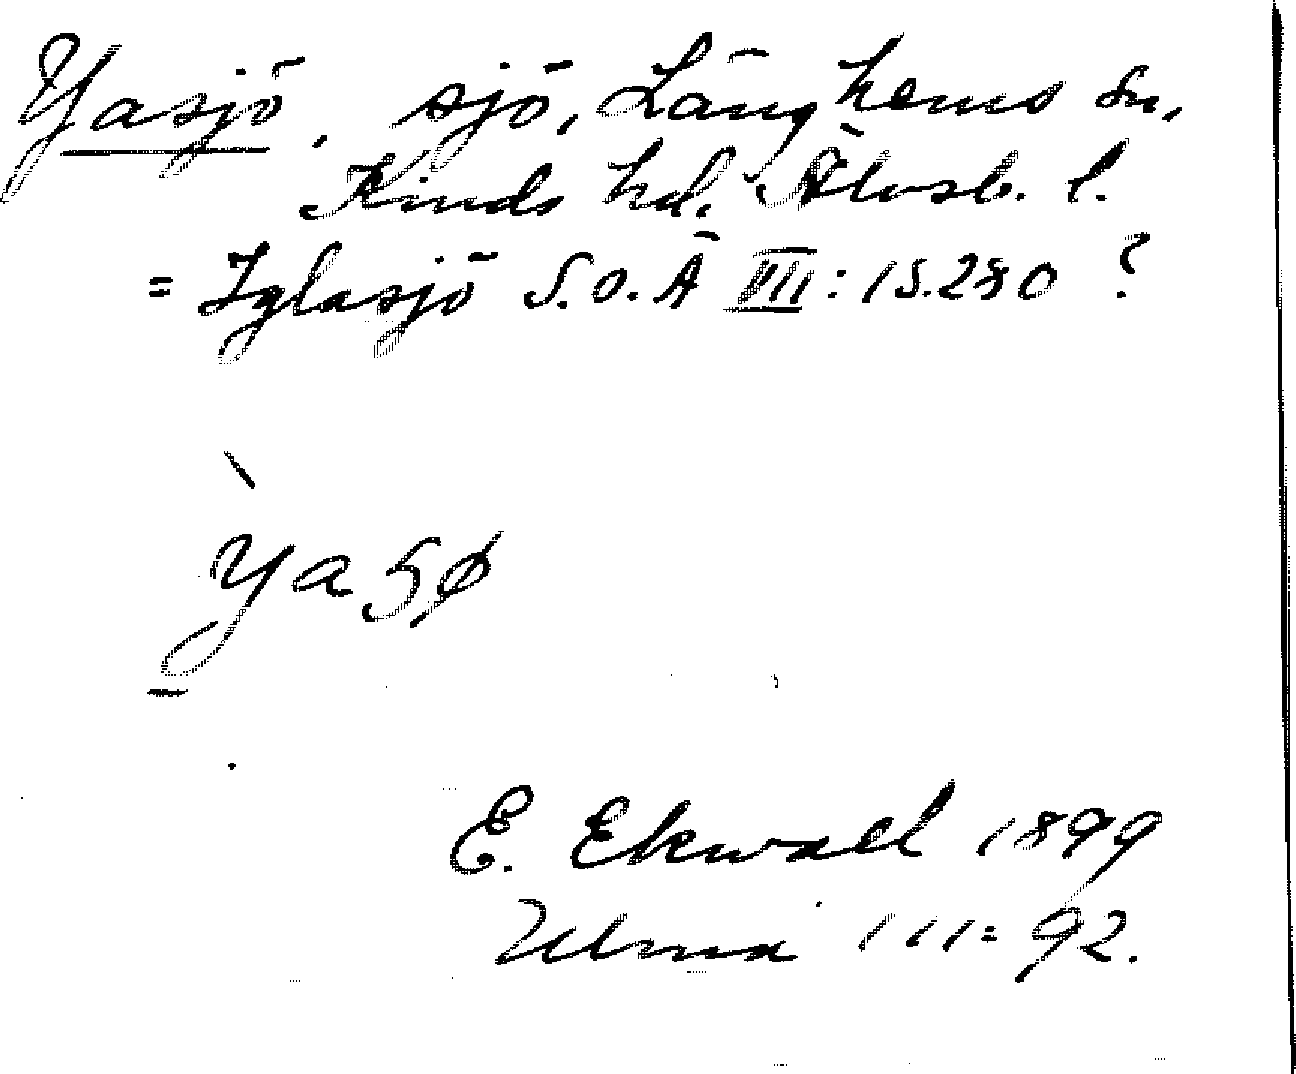 Yasjö, sjö, Länghems sn,
Kinds hd. Älvsb. l.
= Iglasjö S.O.Ä VIII: 1 S. 280 ?
ỳa sø
E. Ekwall 1899
Ulma 111:92.